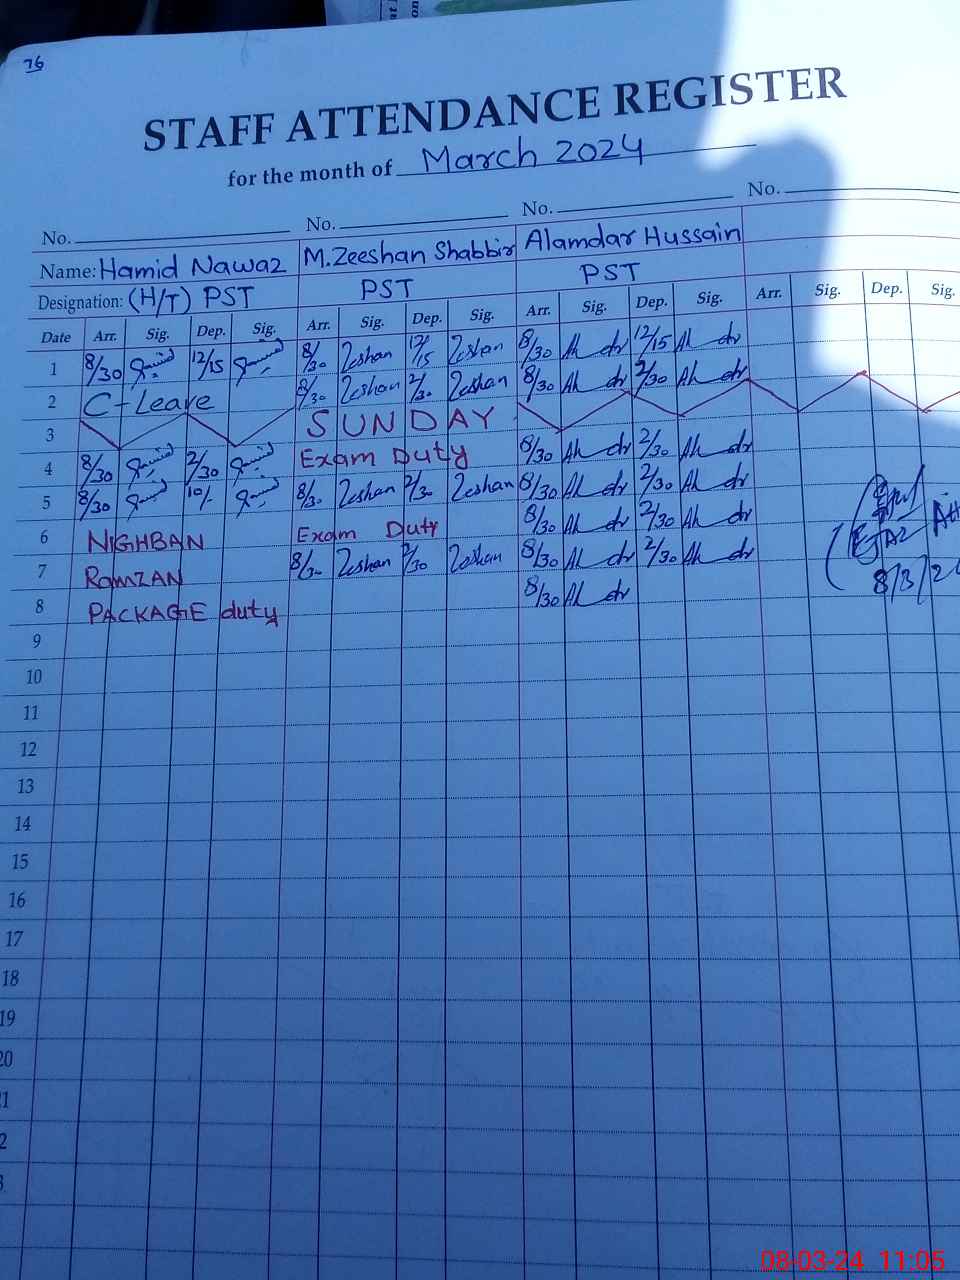 76
STAFF ATTENDANCE REGISTER
for the month of March 2024
No. No. No. No.
Name: Hamid Nawaz M.Zeeshan Shabbir Alamdar Hussain
Designation: (H/T) PST PST PST
Date Arr. Sig. Dep. Sig. Arr. Sig. Dep. Sig. Arr. Sig. Dep. Sig. Arr. Sig. Dep. Sig.
1 8/30 12/15 8/30 Zeshan 12/15 Zeshan 8/30 12/15
2 C-Leave 8/30 Zeshan 2/30 Zeshan 8/30 2/30
3 SUNDAY
4 8/30 2/30 Exam Duty 8/30 2/30
5 8/30 10/- 8/30 Zeshan 2/30 Zeshan 8/30 2/30
6 NIGHBAN Exam Duty 8/30 2/30
7 RamZAN 8/30 Zeshan 2/30 Zeshan 8/30 2/30
8 PACKAGE duty 8/30
9
10
11
12
13
14
15
16
17
18
19
20
08-03-24 11:05